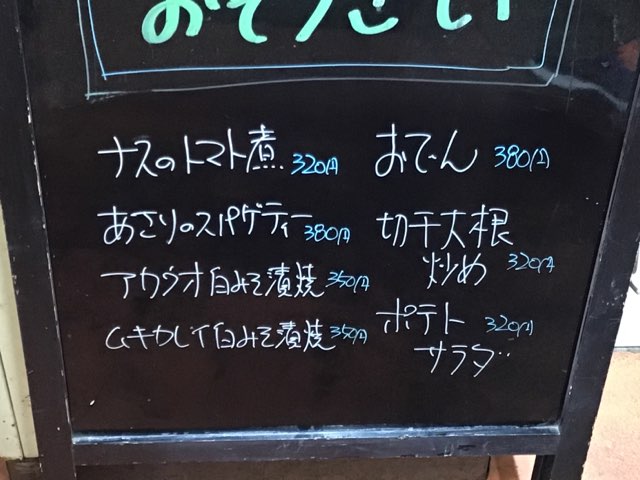 おそうざい
ナスのトマト煮 320円
あさりのスパゲティー 380円
アカウオ白みそ漬焼 350円
ムキカレイ白みそ漬焼 350円
おでん 380円
切干大根
炒め 320円
ポテト 320円
サラダ